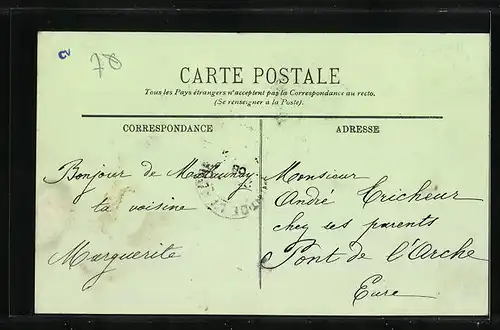 78
CARTE POSTALE
Tous les Pays étrangers n'acceptent pas la Correspondance au recto.
(Se renseigner à la Poste).
CORRESPONDANCE
ADRESSE
Bonjour de
ta voisine
Marguerite
Monsieur
André Cricheur
chez ses parents
Pont de l'Arche
Eure